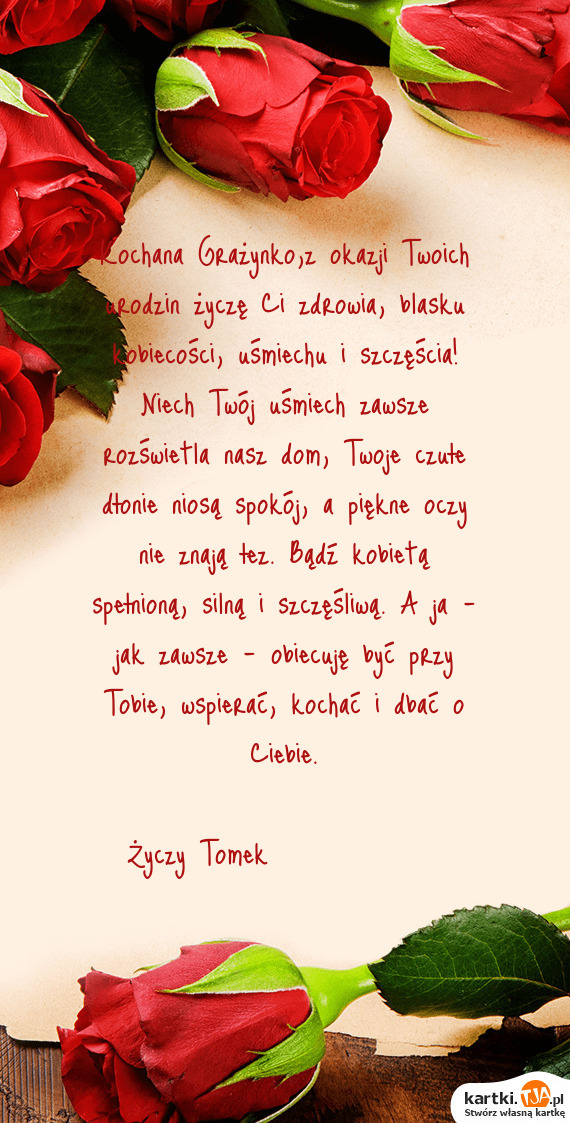 Kochana Grażynko,z okazji Twoich
urodzin życzę Ci zdrowia, blasku
kobiecości, uśmiechu i szczęścia!
Niech Twój uśmiech zawsze
rozświetla nasz dom, Twoje czułe
dłonie niosą spokój, a piękne oczy
nie znają łez. Bądź kobietą
spełnioną, silną i szczęśliwą. A ja -
jak zawsze - obiecuję być przy
Tobie, wspierać, kochać i dbać o
Ciebie.
Życzy Tomek
kartki.TJA.pl
Stwórz własną kartkę